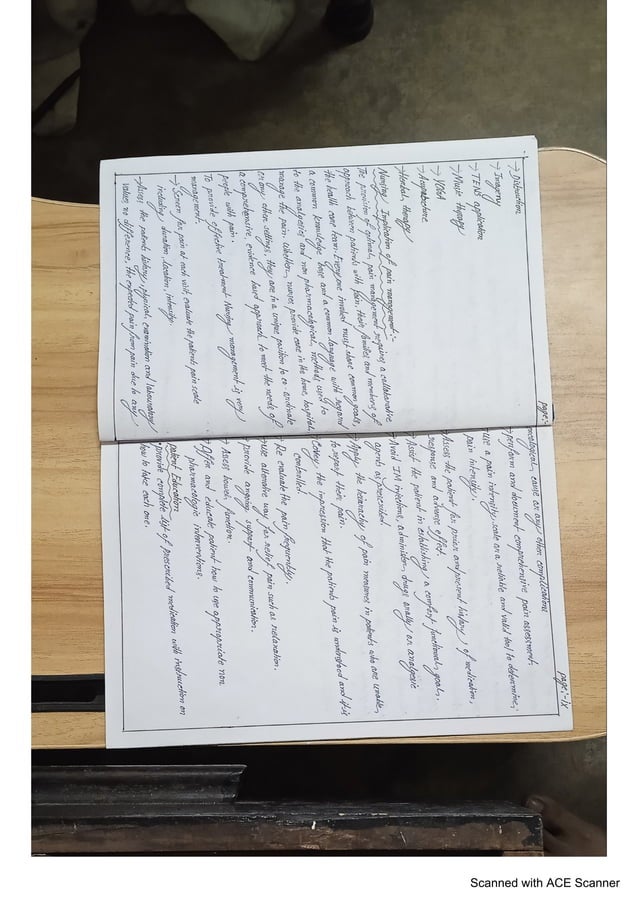 page:-
→ Distraction
→ Imagery
→ TENS application
→ Music therapy
→ YOGA
→ Acupuncture
→ Herbal therapy
Nursing Implication of pain management:-
The provision of optimal, pain management requires a collaborative
approach between patients with pain, their families and members of
the health care team. Everyone involved must share common goals,
a common knowledge base and a common language with regard
to the analgesics and non pharmacological, methods used to
manage the pain. Whether, nurses provide care in the home, hospital
or any other settings, they are in a unique position to co-ordinate
a comprehensive, evidence based approach to meet the needs of
people with pain.
To provide effective treatment Nursing management is very
management.
→ Screen for pain at each visit, evaluate the patients pain scale
including duration, location, intensity.
→ Assess the patients history, physical, examination and labouratory
values, no difference, the expected pain from pain due to any
page:-ix
cause or any other complications
perform and document comprehensive pain assessment.
use a pain intensity scale or a reliable and valid tool to determine,
pain intensity.
Assess the patient for prior and present history of medication,
response and adverse effect.
Assist the patient in establishing a comfort functional goal,
Avoid IM injections, administer, drugs orally or analgesic
agents as prescribed.
Apply the hierarchy of pain measures in patients who are unable,
to report their pain.
Convey the impression that the patients pain is understood and it is
controlled
Re evaluate the pain frequently.
use alternative ways for relief pain such as relaxation.
provide ongoing support and communication.
Assess bowel function.
Offer and educate patient how to use appropriate non
pharmacologic interventions.
Patient Education
provide complete list of prescribed medication with instruction on
how to take each one.
Scanned with ACE Scanner